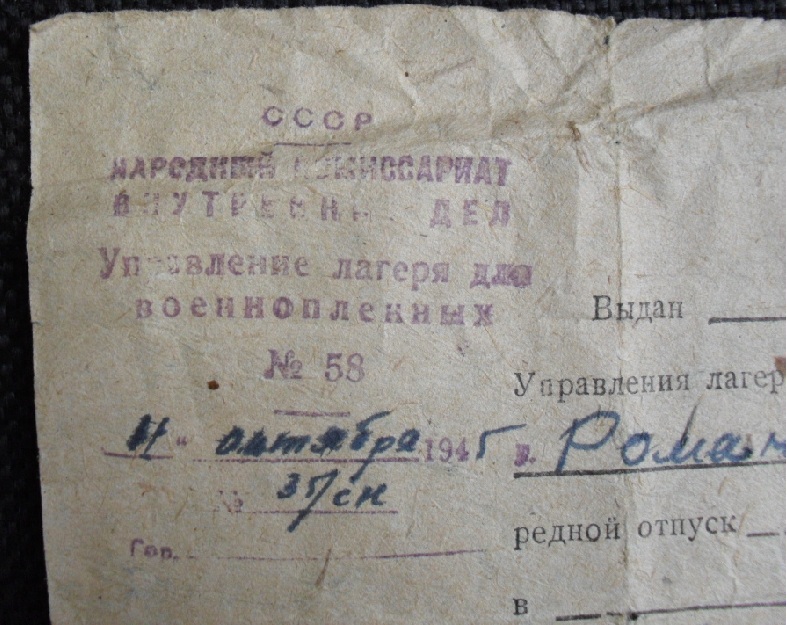 СССР
НАРОДНЫЙ КОМИССАРИАТ
ВНУТРЕННИХ ДЕЛ
Управление лагеря для
военнопленных
№ 58
11 " октября 1945 г.
№ 35/сн
Гор.
Выдан
Управления лагер
Роман
редной отпуск
в